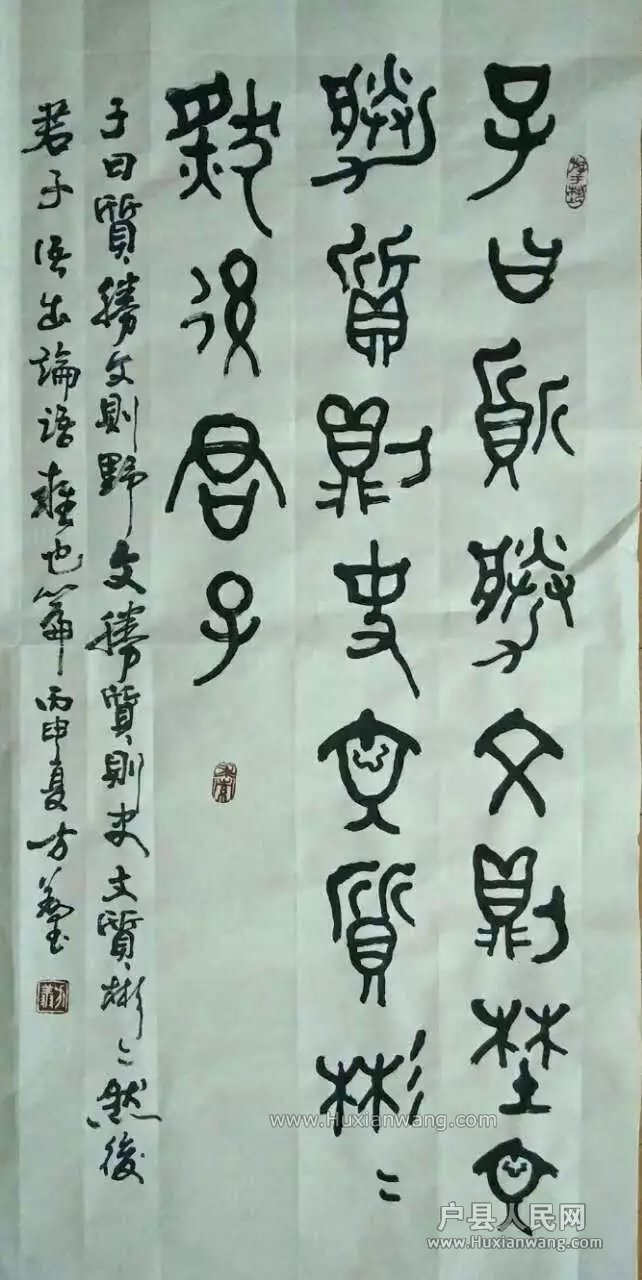 子曰質勝文則埜文
勝質則史文質彬〻
然後君子
子曰質勝文則野文勝質則史文質彬〻然後
君子語出論語雍也篇丙申夏方
www.Huxianwang.com
户县人民网
www.Huxianwang.com